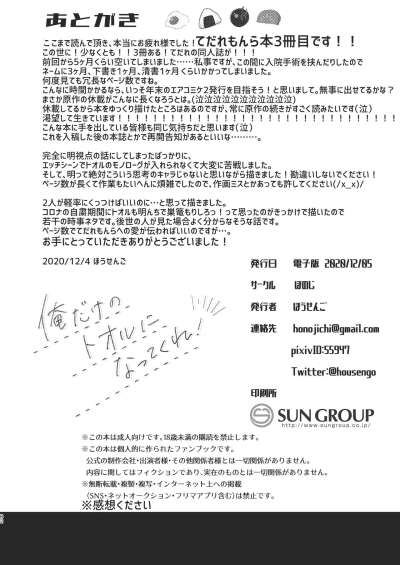 あとがき
ここまで読んで頂き、本当にお疲れ様でした!てだれもんら本3冊目です!!
この世に!少なくとも!!3冊ある!てだれの同人誌が!!!!
前回から5ヶ月くらい空いてしまいました……私事ですが、この間に入院手術を挟んだりしたので
ネームに3ヶ月、下書き1ヶ月、清書1ヶ月くらいかかってしまいました。
何度見ても冗長なページ数ですね。
こんなに時間かかるなら、いっそ年末のエアコミケ2発行を目指そう!と思いまして。無事に出せてるかな?
まさか原作の休載がこんなに長くなろうとは。(泣泣泣泣泣泣泣泣泣泣)
休載してるから本をゆっくり描けたところはあるのですが、常に原作の続きがすごく読みたいです(泣)
渇望して生きています!!!!!!!!!!!!!!!!!!!!!!!!!!!!!!!!
こんな本に手を出している皆様も同じ気持ちだと思います(泣)
これを入稿した後の本誌とかで再開告知があるといいな………。
完全に明視点の話にしてしまったばっかりに、
エッチシーンでトオルのモノローグが入れられなくて大変に苦戦しました。
そして、明って絶対こういう思考のキャラじゃないと思いながら描きました!勘違いしないでください!
ページ数が長くて作業もたいへんに煩雑でしたので、作画ミスとかあっても許してください(/x_x)/
2人が軽率にくっつけばいいのに…と思って描きました。
コロナの自粛期間にトオルも明んちで巣篭もりしろ!って思ったのがきっかけで描いたので
若干の時事ネタです。後世の人が見た場合よく分からなそうな話です。
ページ数でてだれもんらへの愛が伝わればいいのですが…。
お手にとっていただきありがとうございました!
2020/12/4 ほうせんご
俺だけの
トオルに
なってくれ!
発行日 電子版 2020/12/05
サークル ほのじ
発行者 ほうせんご
連絡先 honojichi@gmail.com
pixivID:55947
Twitter:@housengo
印刷所
SUN GROUP
http://www.sungroup.co.jp/
※この本は成人向けです。18歳未満の購読を禁止します。
※この本は個人的に作られたファンブックです。
公式の制作会社・出演者様・その他関係者様とは一切関係がありません。
内容に関してはフィクションであり、実在のものとは一切関係がありません。
※無断転載・複製・複写・インターネット上への掲載
(SNS・ネットオークション・フリマアプリ含む)は禁止です。
※感想ください